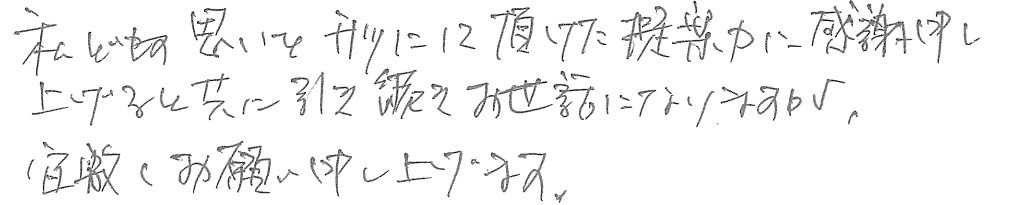 私どもの思いを形にして頂けた提案力に感謝申し
上げると共に引き続きお世話になりますが、
宜敷くお願い申し上げます。